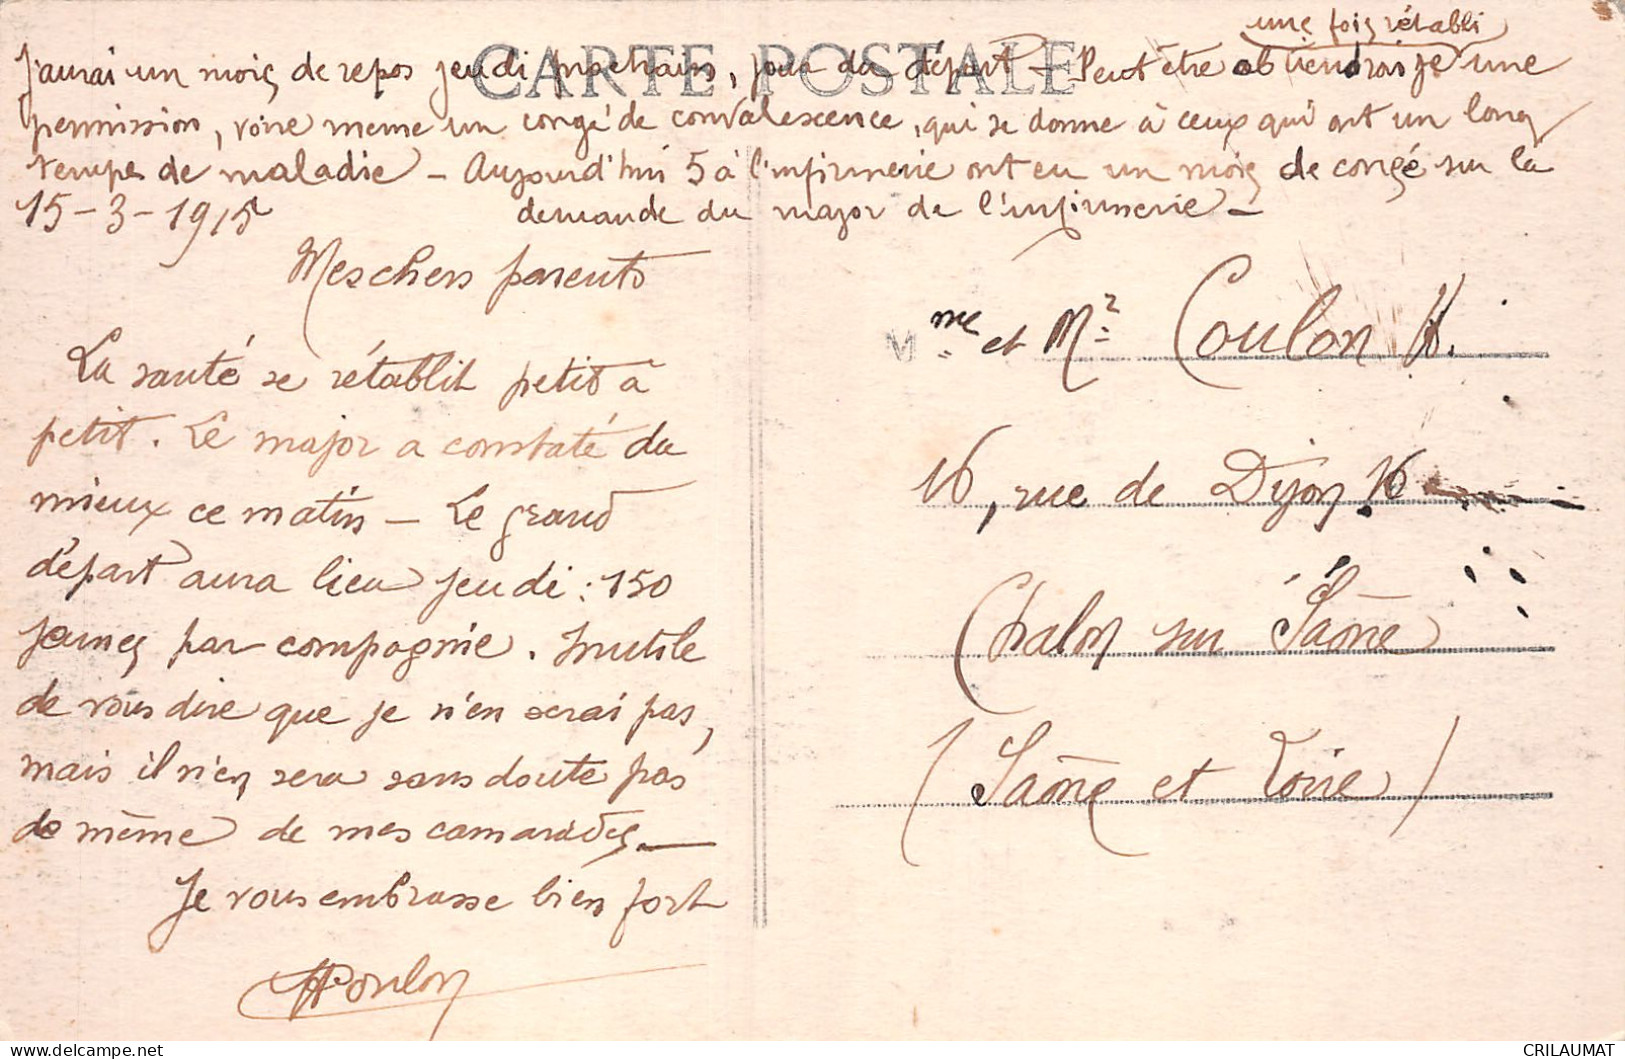 une fois rétabli
J'aurai un mois de repos jeudi prochain, jour du départ — Peut être obtiendrai je une
permission, voire meme un congé de convalescence, qui se donne à ceux qui ont un long
temps de maladie — Aujourd'hui 5 à l'infirmerie ont eu un mois de congé sur la
demande du major de l'infirmerie —
CARTE POSTALE
15-3-1915
Mes chers parents
La santé se rétablit petit à
petit. Le major a constaté du
mieux ce matin — Le grand
départ aura lieu jeudi : 150
jeunes par compagnie. Inutile
de vous dire que je n'en serai pas,
mais il n'en sera sans doute pas
de même de mes camarades. —
Je vous embrasse bien fort
HCoulon
Mme et Mr Coulon H.
16, rue de Dijon 16
Chalon sur Saône
(Saône et Loire)
CRILAUMAT